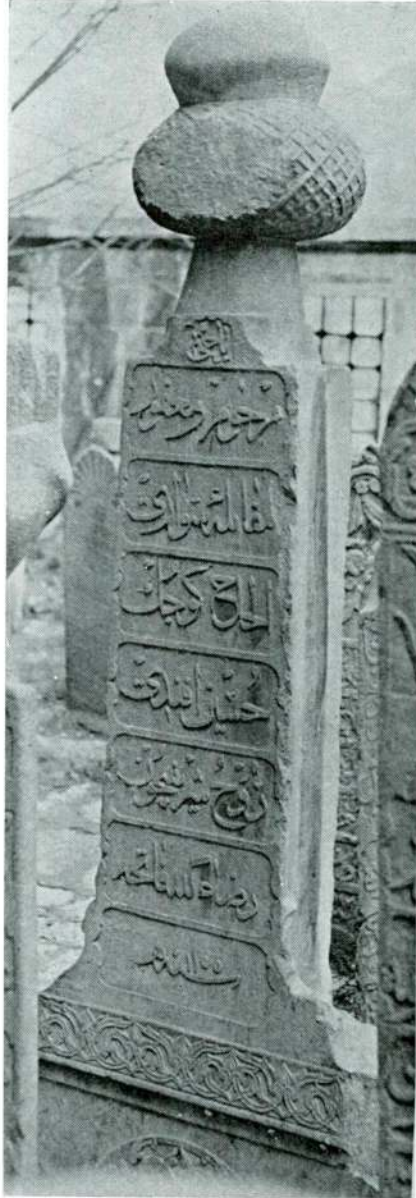 الباقي
مرحوم و مغفور
مقابلهٔ سواری
الحاج كوچك
حسين افندى
روح شريفيچون
رضاء لله فاتحه
سنه ١١٠٥